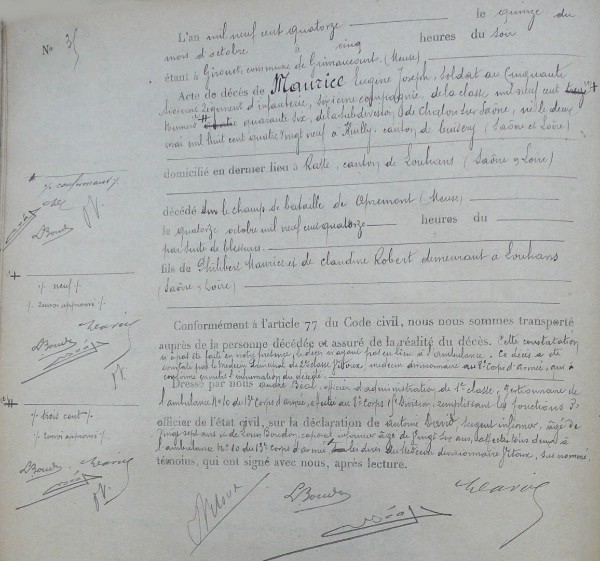 No 35
L'an mil neuf cent quatorze le quinze du
mois d'octobre à cinq heures du soir
étant à Girouet, commune de Grimaucourt. (Meuse)
Acte de décès de Maurice Eugène Joseph, soldat au Cinquante
sixième Régiment d'infanterie, sixième compagnie, de la classe mil neuf cent neuf
numéro quarante six, de la subdivision de Chalon sur Saône, né le deux
mai mil huit cent quatre vingt neuf à canton de Cuisery (Saône et Loire)
domicilié en dernier lieu à Ratte, canton de Louhans (Saône & Loire)
décédé sur le champ de bataille de Apremont (Meuse)
le quatorze octobre mil neuf cent quatorze heures du
par suite de blessures.
fils de Philibert Maurice et de Claudine Robert demeurant à Louhans
(Saône & Loire)
Conformément à l'article 77 du Code civil, nous nous sommes transporté
auprès de la personne décédée et assuré de la réalité du décès. Cette constatation
n'a pas été faite en notre présence, le décès n'ayant pas eu lieu à l'ambulance. Ce décès a été
constaté par le Médecin Principal de 2e classe Vitoux, médecin divisionnaire au 8e Corps d'Armée, qui a
confirmé ensuite l'inhumation du décédé.
Dressé par nous André Béal, officier d'administration de 1e classe, gestionnaire de
l'ambulance No 10 du 13e Corps d'armée, affectée au 8e Corps 15e Division, remplissant les fonctions d'
officier de l'état civil, sur la déclaration de Antoine David, sergent infirmier, âgé de
vingt sept ans et de Louis Bourdon, caporal infirmier âgé de vingt six ans, affectés tous deux à
l'ambulance No 10 du 13e corps d'armée les dires du Médecin divisionnaire Vitoux, susnommé.
témoins, qui ont signé avec nous, après lecture.
neuf
renvoi approuvé
trois cent
renvoi approuvé